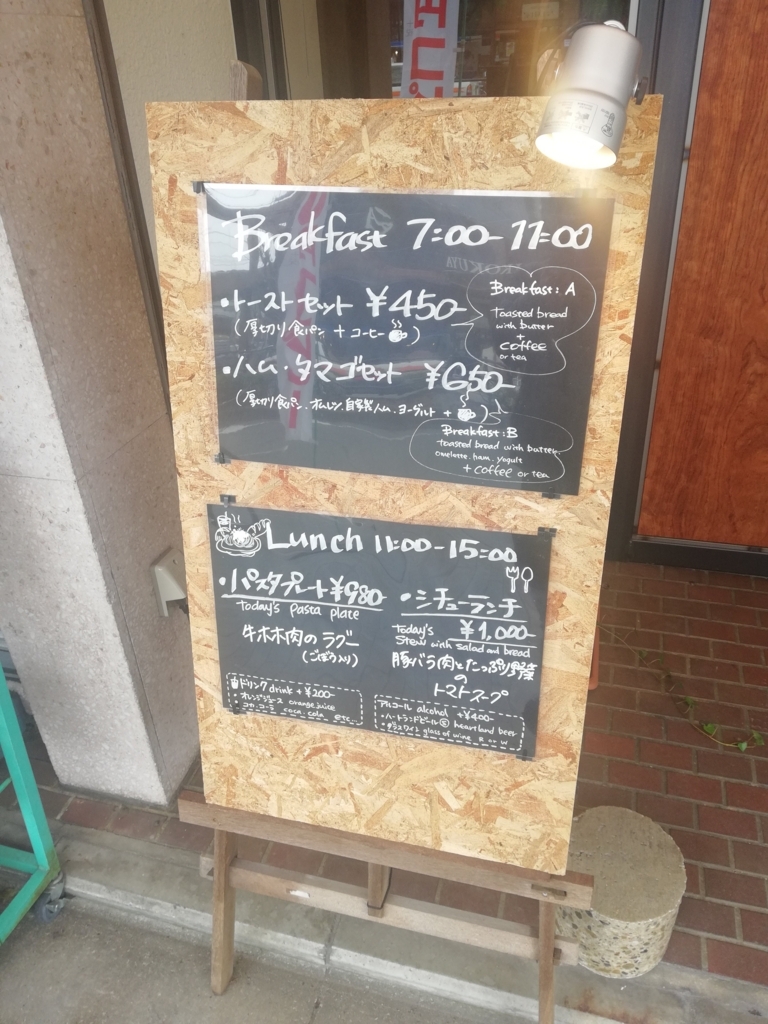 Breakfast 7:00-11:00
・トーストセット ¥450-
(厚切り食パン + コーヒー)
Breakfast: A
toasted bread
with butter
+
coffee
or tea
・ハム・タマゴセット ¥650-
(厚切り食パン.オムレツ.自家製ハム.ヨーグルト +)
Breakfast: B
toasted bread with butter.
omelette. ham. yogult
+ coffee or tea
Lunch 11:00-15:00
・パスタプレート ¥980-
today's pasta plate
牛ホホ肉のラグー
(ごぼう入り)
・シチューランチ
today's ¥1,000-
stew with salad and bread
豚バラ肉とたっぷり野菜
の
トマトスープ
ドリンク drink +¥200-
・オレンジジュース orange juice
・コカ.コーラ coca.cola etc...
アルコール alcohol +¥400-
・ハートランドビール 小 heartland beer
・グラスワイン glass of wine R or W